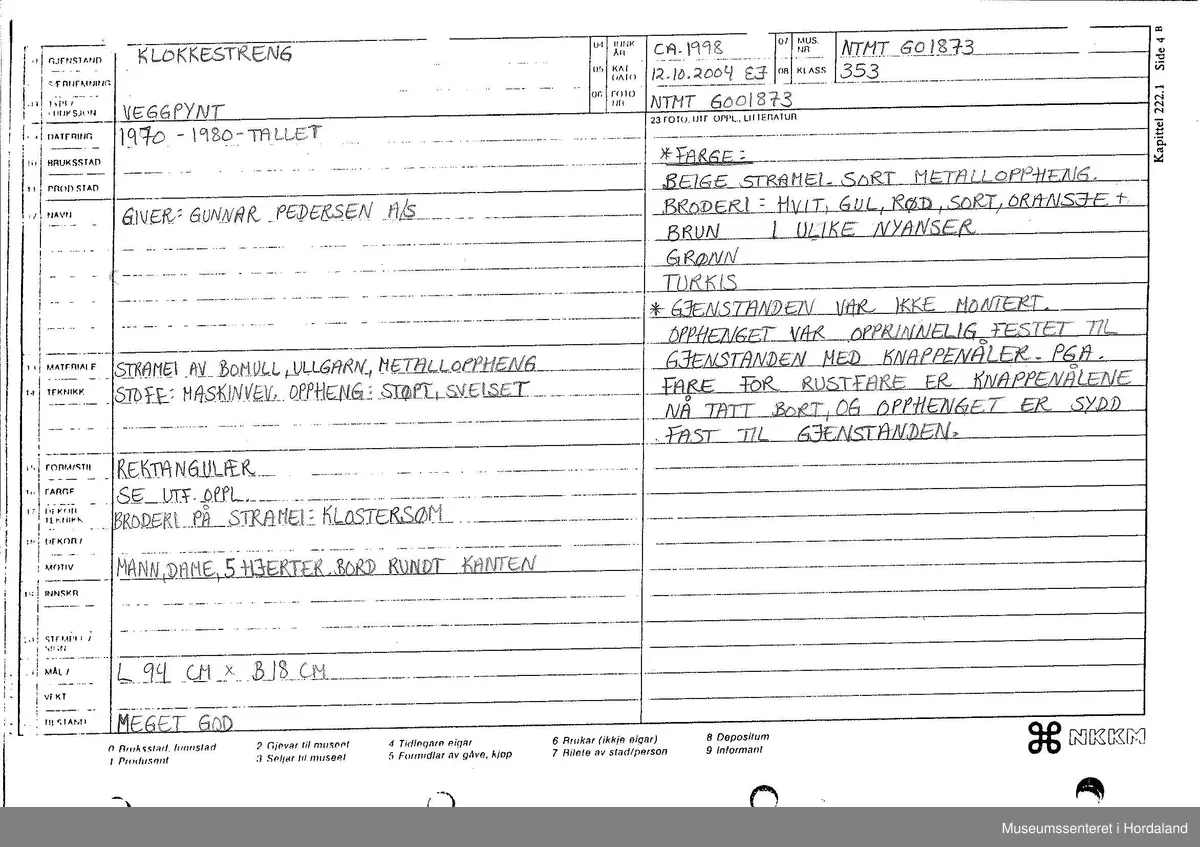 GJENSTAND KLOKKESTRENG
04 INNK ÅR CA. 1998
07 MUS. NR NTMT GO1873
SÆRNEMNING
05 KAT DATO 12.10.2004 EJ
08 KLASS 353
VEGGPYNT
06 FOTO NR NTMT GO01873
DATERING 1970-1980-TALLET
BRUKSSTAD
PROD STAD
NAVN GIVER: GUNNAR PEDERSEN A/S
MATERIALE STRAMEI AV BOMULL, ULLGARN, METALLOPPHENG
TEKNIKK STOFF: MASKINVEV. OPPHENG: STØPT, SVEISET
FORM/STIL REKTANGULÆR
FARGE SE UTF. OPPL.
DEKOR TEKNIKK BRODERI PÅ STRAMEI: KLOSTERSØM
DEKOR/
MOTIV MANN, DAME, 5 HJERTER. BORD RUNDT KANTEN
INNSKR
STEMPEL/
SIGN
MÅL/ L 94 CM x B 18 CM
VEKT
TILSTAND MEGET GOD
23 FOTO, UTF OPPL., LITTERATUR
*FARGE:
BEIGE STRAMEI. SORT METALLOPPHENG.
BRODERI: HVIT, GUL, RØD, SORT, ORANSJE +
BRUN I ULIKE NYANSER
GRØNN
TURKIS
* GJENSTANDEN VAR IKKE MONTERT.
OPPHENGET VAR OPPRINNELIG FESTET TIL
GJENSTANDEN MED KNAPPENÅLER. PGA.
FARE FOR RUSTFARE ER KNAPPENÅLENE
NÅ TATT BORT, OG OPPHENGET ER SYDD
FAST TIL GJENSTANDEN.
Kapittel 222.1 Side 4 B
0 Bruksstad, funnstad
1 Produsent
2 Gjevar til museet
3 Seljar til museet
4 Tidlegare eigar
5 Formidlar av gåve, kjøp
6 Brukar (ikkje eigar)
7 Bilete av stad/person
8 Depositum
9 Informant
NKKM
Museumssenteret i Hordaland